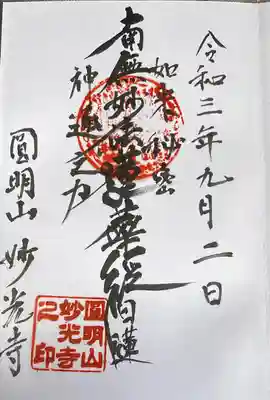 令和三年九月二日
如来秘密
南無妙法蓮華経
神通之力
圓明山 妙光寺
圓明山
妙光寺
之印